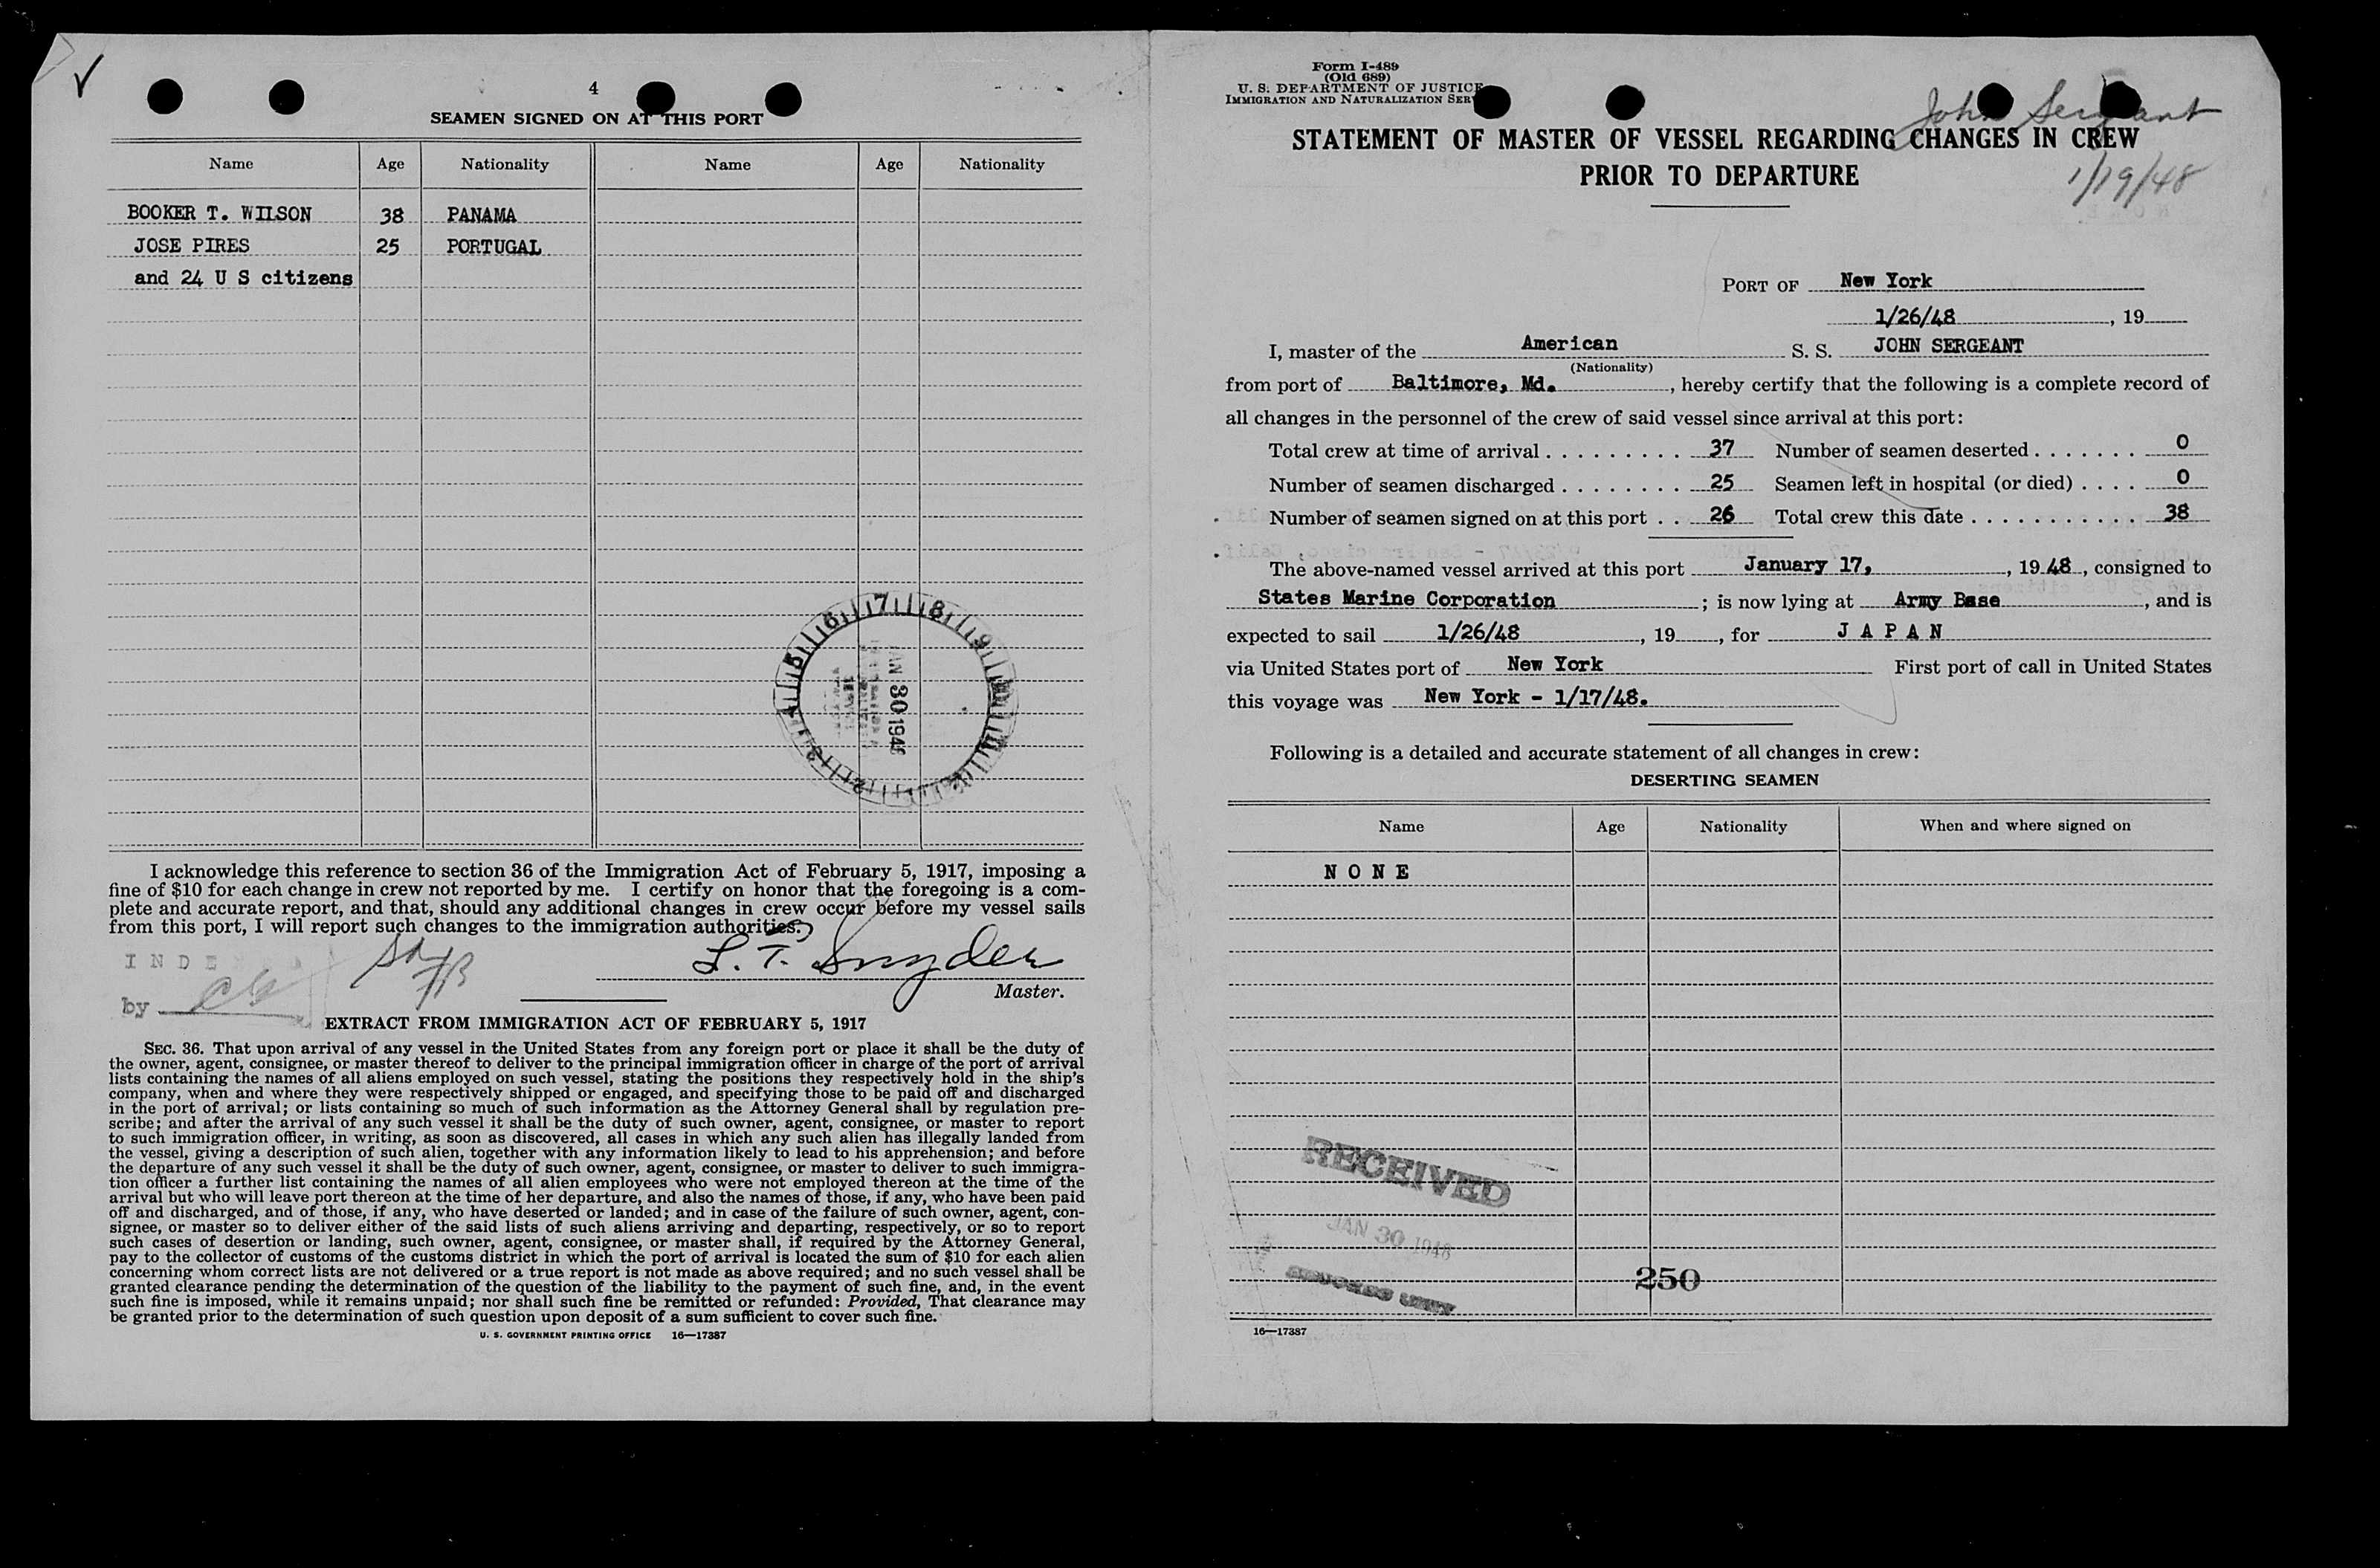 4
SEAMEN SIGNED ON AT THIS PORT
Name Age Nationality Name Age Nationality
BOOKER T. WILSON 38 PANAMA
JOSE PIRES 25 PORTUGAL
and 24 U S citizens
5 6 7 8 9
JAN 30 1948
I acknowledge this reference to section 36 of the Immigration Act of February 5, 1917, imposing a
fine of $10 for each change in crew not reported by me. I certify on honor that the foregoing is a com-
plete and accurate report, and that, should any additional changes in crew occur before my vessel sails
from this port, I will report such changes to the immigration authorities.
L. T. Snyder
Master.
INDE
by
EXTRACT FROM IMMIGRATION ACT OF FEBRUARY 5, 1917
SEC. 36. That upon arrival of any vessel in the United States from any foreign port or place it shall be the duty of
the owner, agent, consignee, or master thereof to deliver to the principal immigration officer in charge of the port of arrival
lists containing the names of all aliens employed on such vessel, stating the positions they respectively hold in the ship's
company, when and where they were respectively shipped or engaged, and specifying those to be paid off and discharged
in the port of arrival; or lists containing so much of such information as the Attorney General shall by regulation pre-
scribe; and after the arrival of any such vessel it shall be the duty of such owner, agent, consignee, or master to report
to such immigration officer, in writing, as soon as discovered, all cases in which any such alien has illegally landed from
the vessel, giving a description of such alien, together with any information likely to lead to his apprehension; and before
the departure of any such vessel it shall be the duty of such owner, agent, consignee, or master to deliver to such immigra-
tion officer a further list containing the names of all alien employees who were not employed thereon at the time of the
arrival but who will leave port thereon at the time of her departure, and also the names of those, if any, who have been paid
off and discharged, and of those, if any, who have deserted or landed; and in case of the failure of such owner, agent, con-
signee, or master so to deliver either of the said lists of such aliens arriving and departing, respectively, or so to report
such cases of desertion or landing, such owner, agent, consignee, or master shall, if required by the Attorney General,
pay to the collector of customs of the customs district in which the port of arrival is located the sum of $10 for each alien
concerning whom correct lists are not delivered or a true report is not made as above required; and no such vessel shall be
granted clearance pending the determination of the question of the liability to the payment of such fine, and, in the event
such fine is imposed, while it remains unpaid; nor shall such fine be remitted or refunded: Provided, That clearance may
be granted prior to the determination of such question upon deposit of a sum sufficient to cover such fine.
U. S. GOVERNMENT PRINTING OFFICE 16—17387
Form I-489
(Old 689)
U. S. DEPARTMENT OF JUSTICE
IMMIGRATION AND NATURALIZATION SER
John Sergeant
STATEMENT OF MASTER OF VESSEL REGARDING CHANGES IN CREW
PRIOR TO DEPARTURE
1/19/48
PORT OF New York
1/26/48, 19
I, master of the American S. S. JOHN SERGEANT
(Nationality)
from port of Baltimore, Md., hereby certify that the following is a complete record of
all changes in the personnel of the crew of said vessel since arrival at this port:
Total crew at time of arrival 37 Number of seamen deserted 0
Number of seamen discharged 25 Seamen left in hospital (or died) 0
Number of seamen signed on at this port 26 Total crew this date 38
The above-named vessel arrived at this port January 17, , 19 48, consigned to
States Marine Corporation ; is now lying at Army Base, and is
expected to sail 1/26/48, 19, for J A P A N
via United States port of New York First port of call in United States
this voyage was New York - 1/17/48.
Following is a detailed and accurate statement of all changes in crew:
DESERTING SEAMEN
Name Age Nationality When and where signed on
N O N E
RECEIVED
JAN 30 1948
250
16—17387